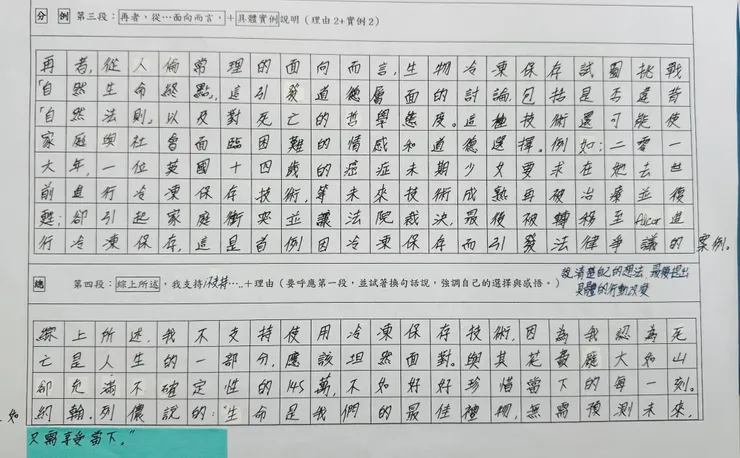 分例 第三段：再者，從…面向而言，+具體實例說明（理由2+實例2）
再者，從人倫常理的面向而言，生物冷凍保存試圖挑戰
「自然生命終點」，這引發道德層面的討論，包括是否違背
「自然法則」，以及對死亡的哲學態度。這種技術還可能使
家庭與社會面臨困難的情感和道德選擇。例如：二零一
六年，一位英國十四歲的癌症末期少女要求在她去世
前進行冷凍保存技術，等未來技術成熟再被治療並復
甦；卻引起家庭衝突並讓法院裁決，最後被轉移至Alcor進
行冷凍保存，這是首例因冷凍保存而引發法律爭議的案例。
總 第四段：綜上所述，我支持/不支持…..+理由（要呼應第一段，並試著換句話說，強調自己的選擇與感悟。）
說清楚自己的想法 最後提出
具體的行動改變
綜上所述，我不支持使用冷凍保存技術，因為我認為死
亡是人生的一部分，應該坦然面對。與其花費龐大如山
卻充滿不確定性的145萬，不如好好珍惜當下的每一刻。
如約翰．列儂說的："生命是我們的最佳禮物，無需預測未來，
只需享受當下。"